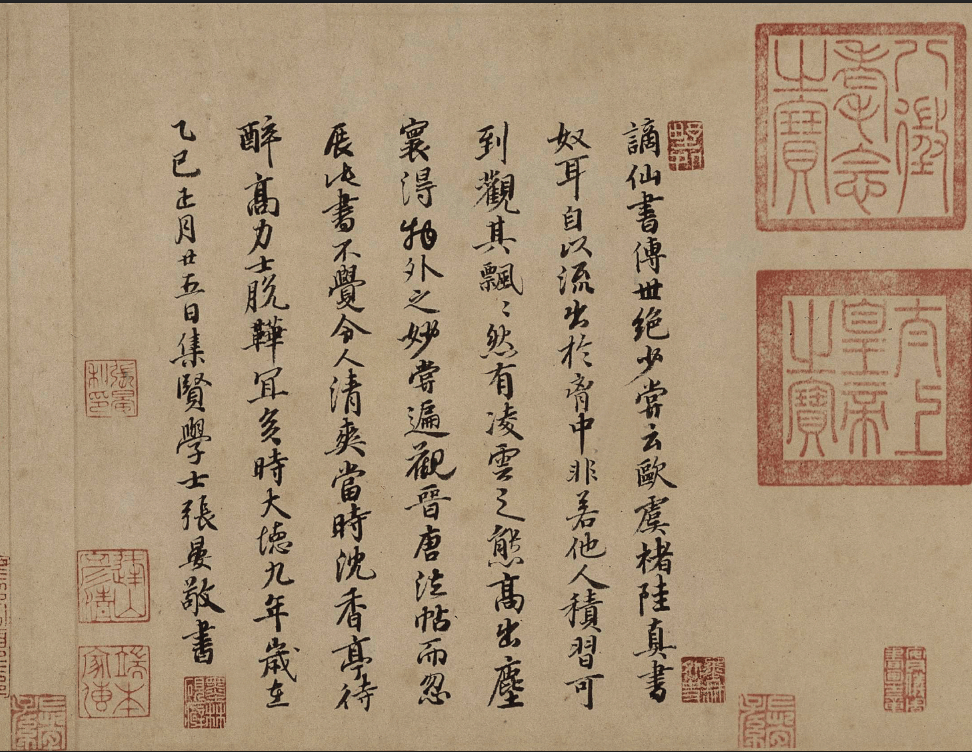 八徵耄念之寶
太上皇帝之寶
謫仙書傳世絕少嘗云歐虞褚陸真書
奴耳自以流出於胷中非若他人積習可
到觀其飄〻然有凌雲之態高出塵
寰得物外之妙嘗遍觀晉唐法帖而忽
展此書不覺令人清爽當時沈香亭待
醉高力士脫鞾冝矣時大德九年歲在
乙巳正月廿五日集賢學士張晏敬書
張晏私印
端本家傳